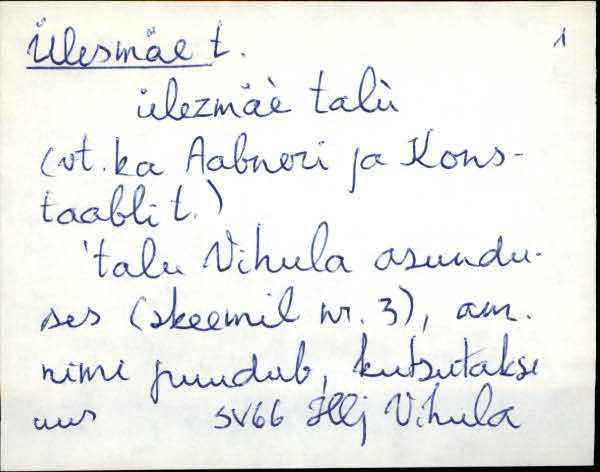 Ülesmäe t. 1
ülezmäè talù
(vt. ka Aabneri ja Kons-
taabli t.)
'talu Vihula asundu-
ses (skeemil nr. 3), am.
nimi puudub, kutsutakse
uus SV66 Hlj Vihula